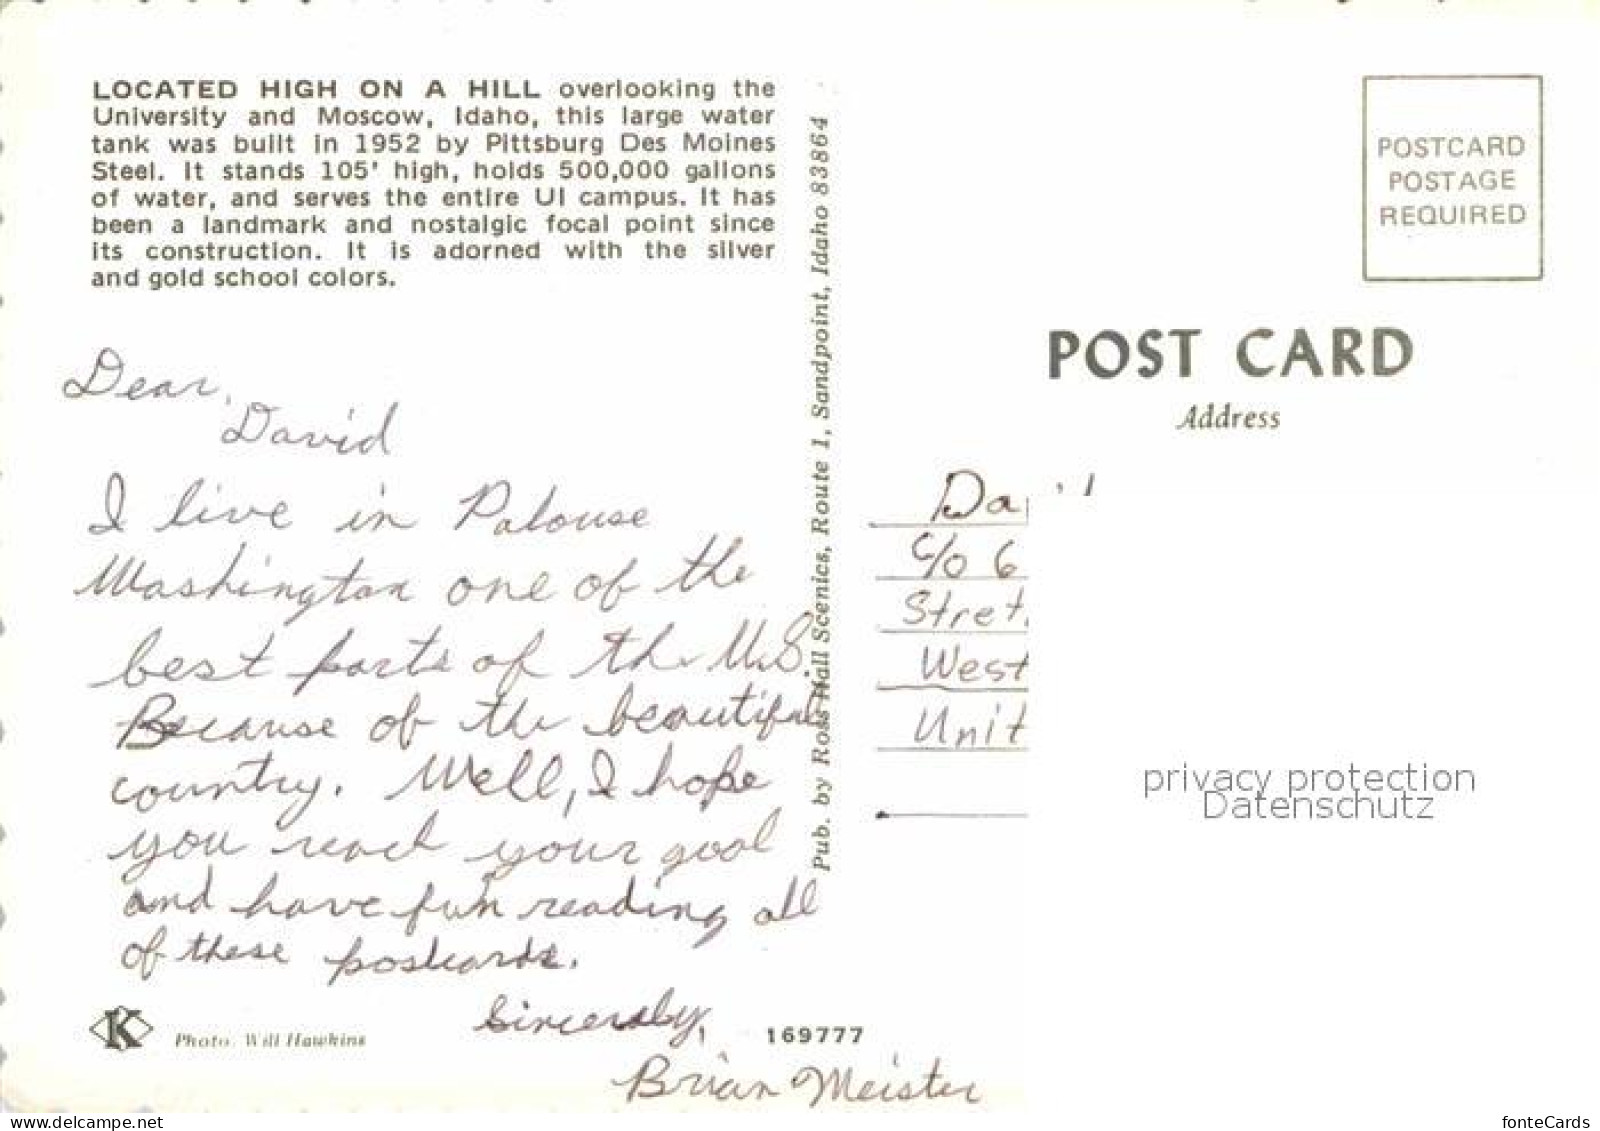 LOCATED HIGH ON A HILL overlooking the
University and Moscow, Idaho, this large water
tank was built in 1952 by Pittsburg Des Moines
Steel. It stands 105' high, holds 500,000 gallons
of water, and serves the entire UI campus. It has
been a landmark and nostalgic focal point since
its construction. It is adorned with the silver
and gold school colors.
Dear,
David
I live in Palouse
Washington one of the
best parts of the U.S.
Because of the beautiful
country. Well, I hope
you reach your goal
and have fun reading all
of these postcards.
Sincerely,
Brian Meister
K
Photo. Will Hawkins
169777
Pub. by Ross Hall Scenics, Route 1, Sandpoint, Idaho 83864
POSTCARD
POSTAGE
REQUIRED
POST CARD
Address
Da
c/o 6
Stret
West
Unit
privacy protection
Datenschutz
www.delcampe.net
fonteCards